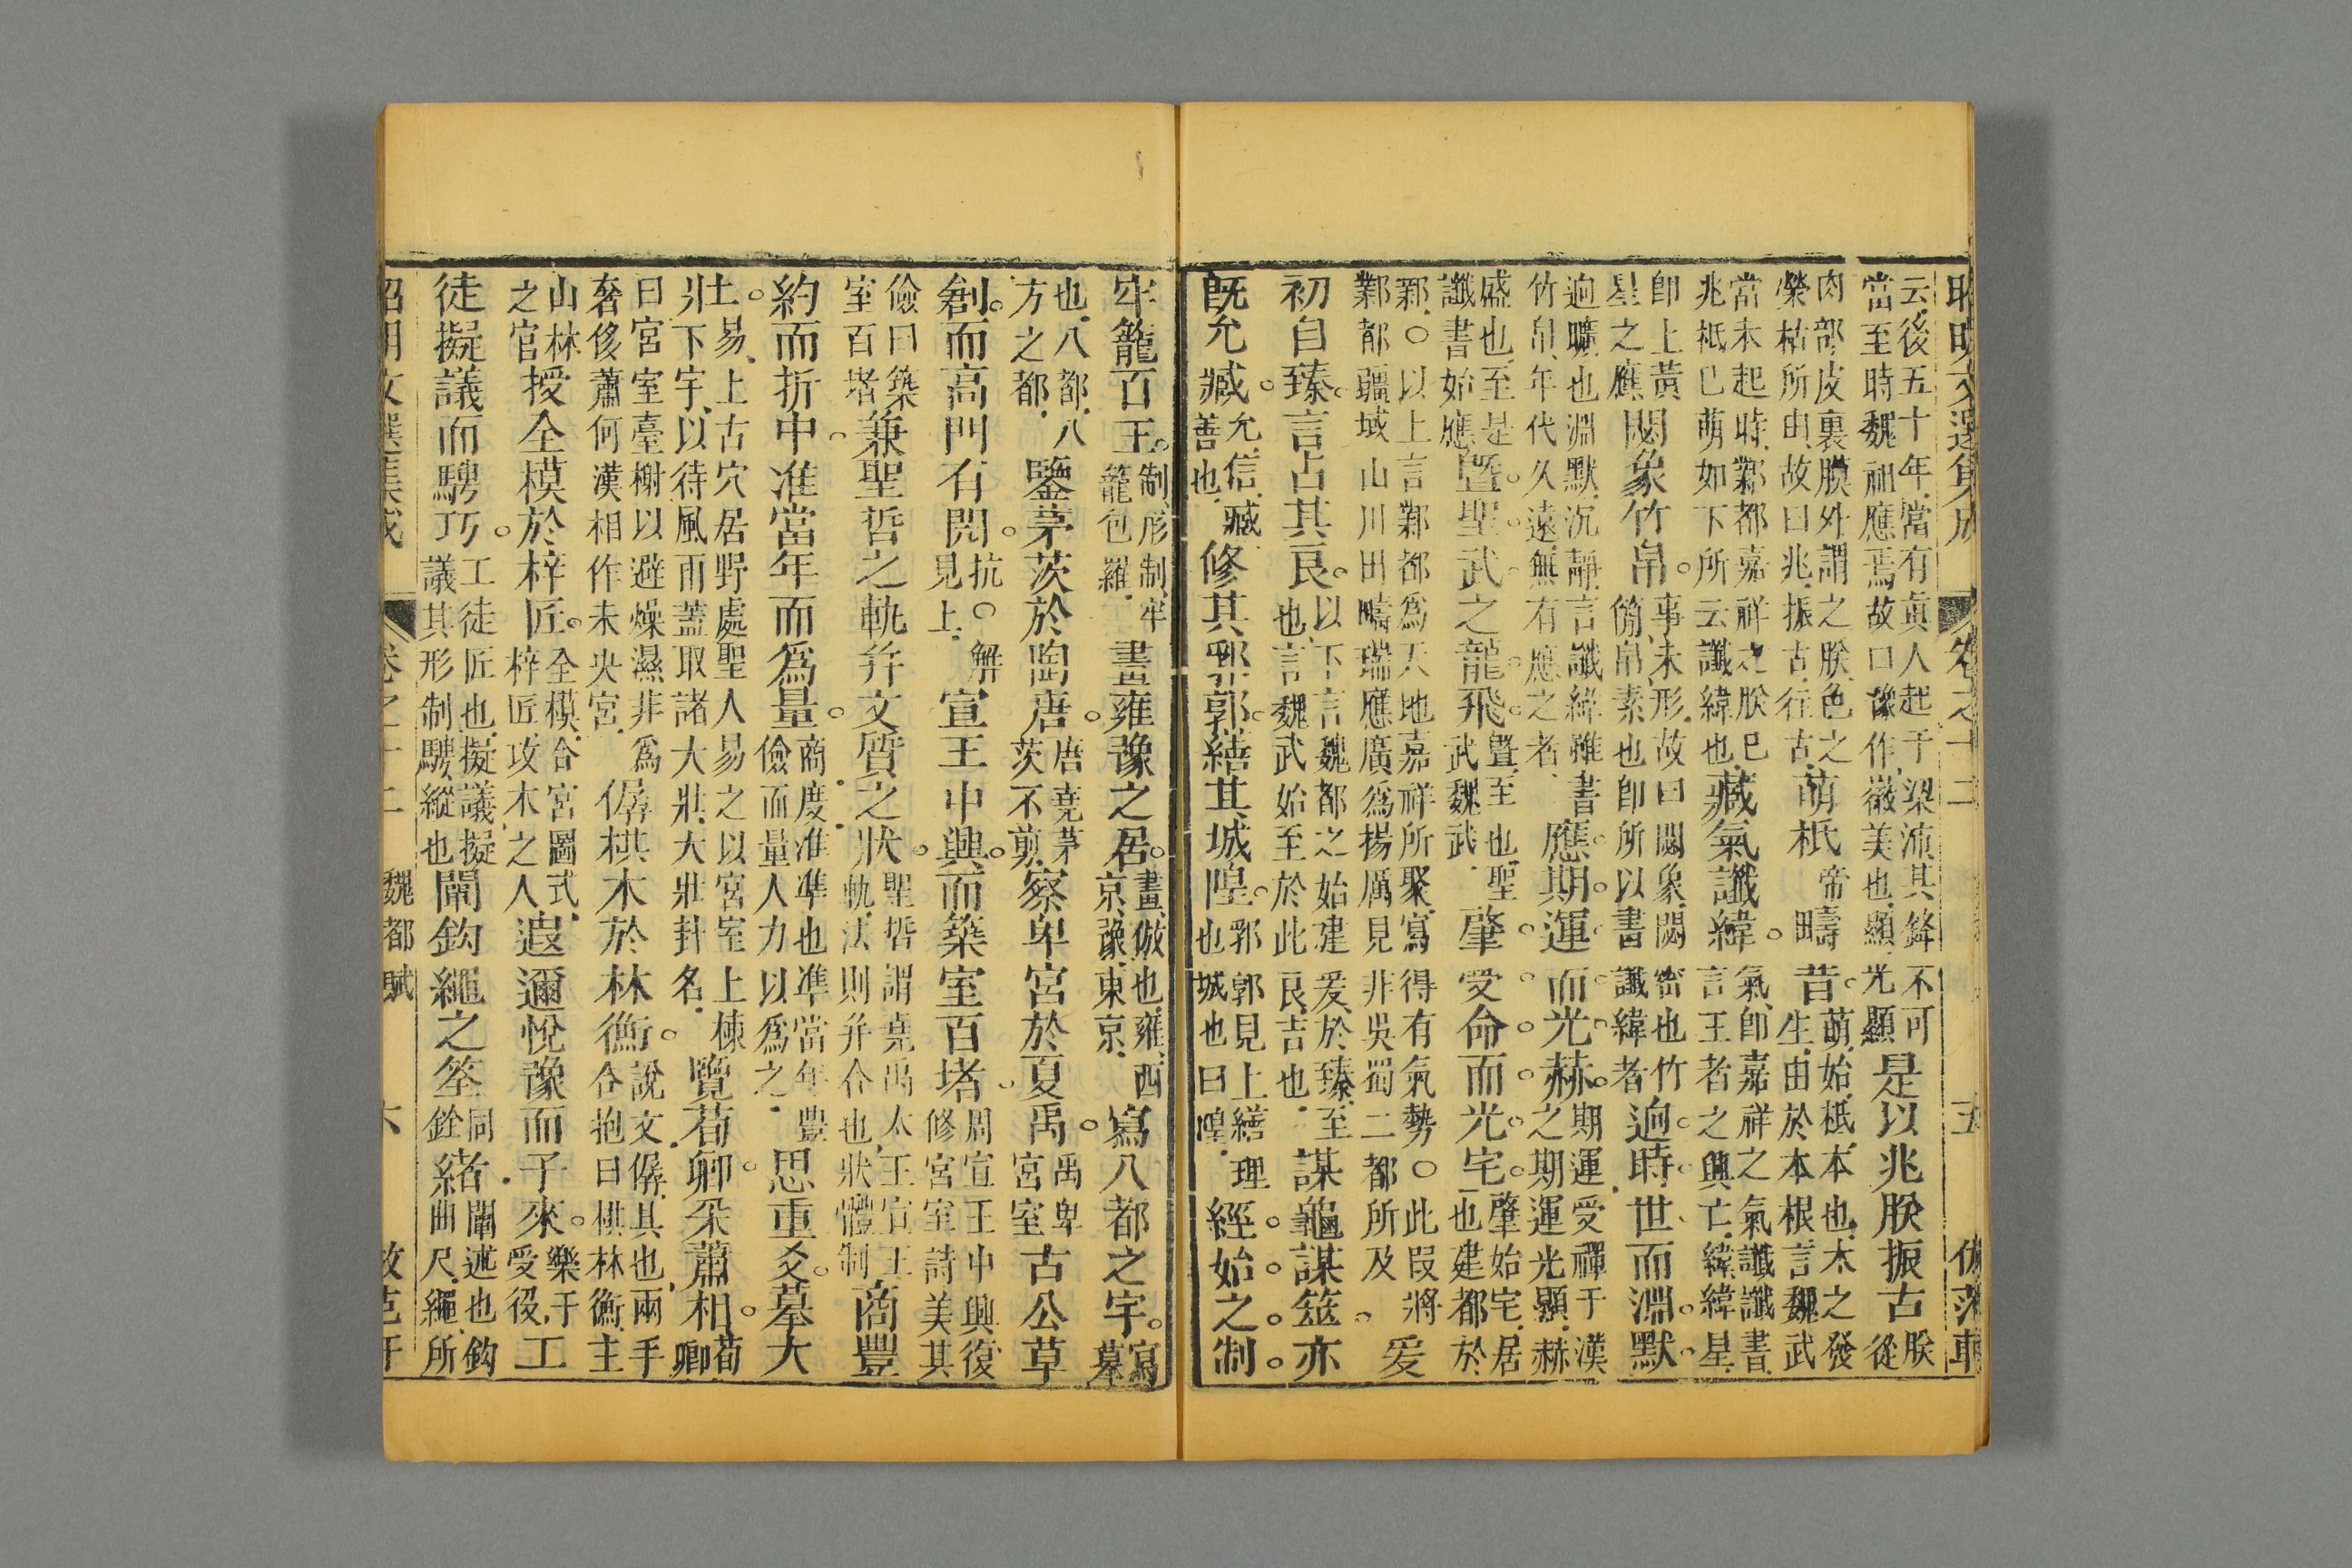 昭明文選集成 卷之十二 五
云後五十年當有眞人起于梁沛其鋒不可
當至時魏祖應焉故口豫作徽美也顯光顯是以兆朕振古朕從
肉部皮裏膜外謂之朕色之
榮枯所由故曰兆振古往古萌柢帝疇昔萌始柢本也太之發生由於本根言魏武
當未起時鄴都嘉祥之朕已
兆柢已萌如下所云讖緯也藏氣讖緯氣卽嘉祥之氣讖讖書言王者之興亡緯緯星
卽上黃
星之應閟象竹帛事未形故曰閟象閟密也竹簡帛素也卽所以書讖緯者逈時世而淵默
逈曠也淵默沉靜言讖緯雖書
竹帛年代久遠無有應之者應期運而光赫期運受禪于漢之期運光顯赫
盛也至是
讖書始應曁聖武之龍飛曁至也聖武魏武肇受命而光宅肇始宅居也建都於
鄴○以上言鄴都爲天地嘉祥所聚寫得有氣勢○此段將
鄴都疆域山川田疇瑞應廣爲揚厲見非吳蜀二都所及爰
初自臻言占其良以下言魏都之始建爰於臻至也言魏武始至於此良吉也謀龜謀筮亦
旣允臧允信臧善也修其郛郭繕其城隍郛郭見上繕理也城也曰隍經始之制
牢籠百王制形制牢籠包羅畫雍豫之居畫倣也雍西京豫東京寫八都之宇寫摹
也八都八
方之都鑒茅茨於陶唐唐堯茅茨不剪察卑宮於夏禹禹卑宮室古公草
創而高門有閌抗○解見上宣王中興而築室百堵周宣王中興復修宮室詩美其
儉曰築
室百堵兼聖哲之軌幷文質之狀聖哲謂堯禹太王宣王軌法則幷合也狀體制商豐
約而折中准當年而爲量商度准準也準當年豐儉而量人力以爲之思重爻摹大
壯土易上古穴居野處聖人易之以宮室上棟
下宇以待風雨蓋取諸大壯大壯卦名覽荀卿采蕭相荀卿
曰宮室臺榭以避燥濕非爲
奢侈蕭何漢相作未央宮僝栱木於林衡說文僝具也兩手合抱曰栱林衡主
山林
之官授全模於梓匠全模合宮圖式梓匠攻木之人遐邇悅豫而子來樂于受役工
徒擬議而騁巧工徒匠也擬議擬議其形制騁縱也闡鈎繩之筌緒同銓闡述也鈎曲尺繩所
昭明文選集成 卷之十二 魏都賦 六